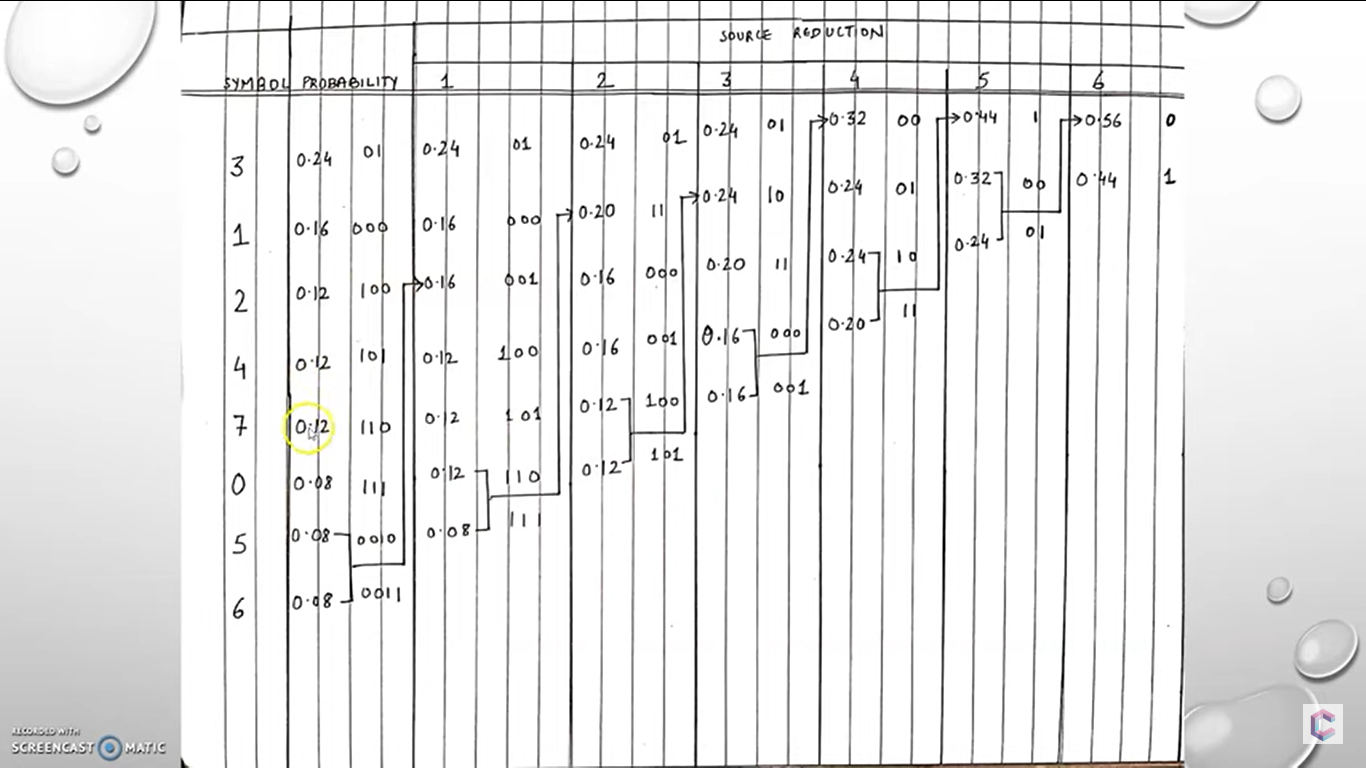 SOURCE REDUCTION
SYMBOL PROBABILITY 1 2 3 4 5 6
3 0.24 01 0.24 01 0.24 01 0.24 01 0.32 00 0.44 1 0.56 0
1 0.16 000 0.16 000 0.20 11 0.24 10 0.24 01 0.32 00 0.44 1
2 0.12 100 0.16 001 0.16 000 0.20 11 0.24 10 0.24 01
4 0.12 101 0.12 100 0.16 001 0.16 000 0.20 11
7 0.12 110 0.12 101 0.12 100 0.16 001
0 0.08 111 0.12 110 0.12 101
5 0.08 0010 0.08 111
6 0.08 0011
RECORDED WITH
SCREENCAST MATIC